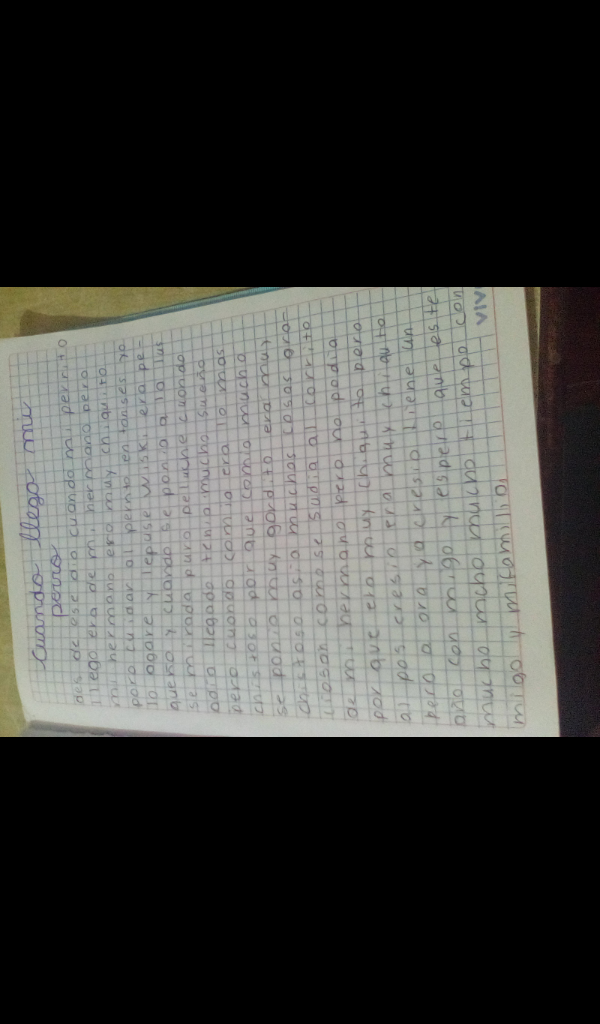 Cuando llego mi
perro
dis de ese dia cuando mi perrito
llego era de mi hermano pero
mi hermano era muy chiquito
para cuidar al perrito entonses yo
lo agare y le puse Wiski era pe-
queño y cuando se ponia a la lus
se miraba puro peluche cuando
abia llegado tenia mucho sueño
pero cuando comia era lo mas
chistoso por que comia mucho
se ponia muy gordito era muy
chistoso asia muchas cosas gra-
siosas como se subia al carrito
de mi hermano pero no podia
por que era muy chiquito pero
al pos cresio era muy chiquito
pero a ora ya cresio tiene un
año con migo y espero que este
mucho mcho mucho tiempo con
migo y mi familia
VIV